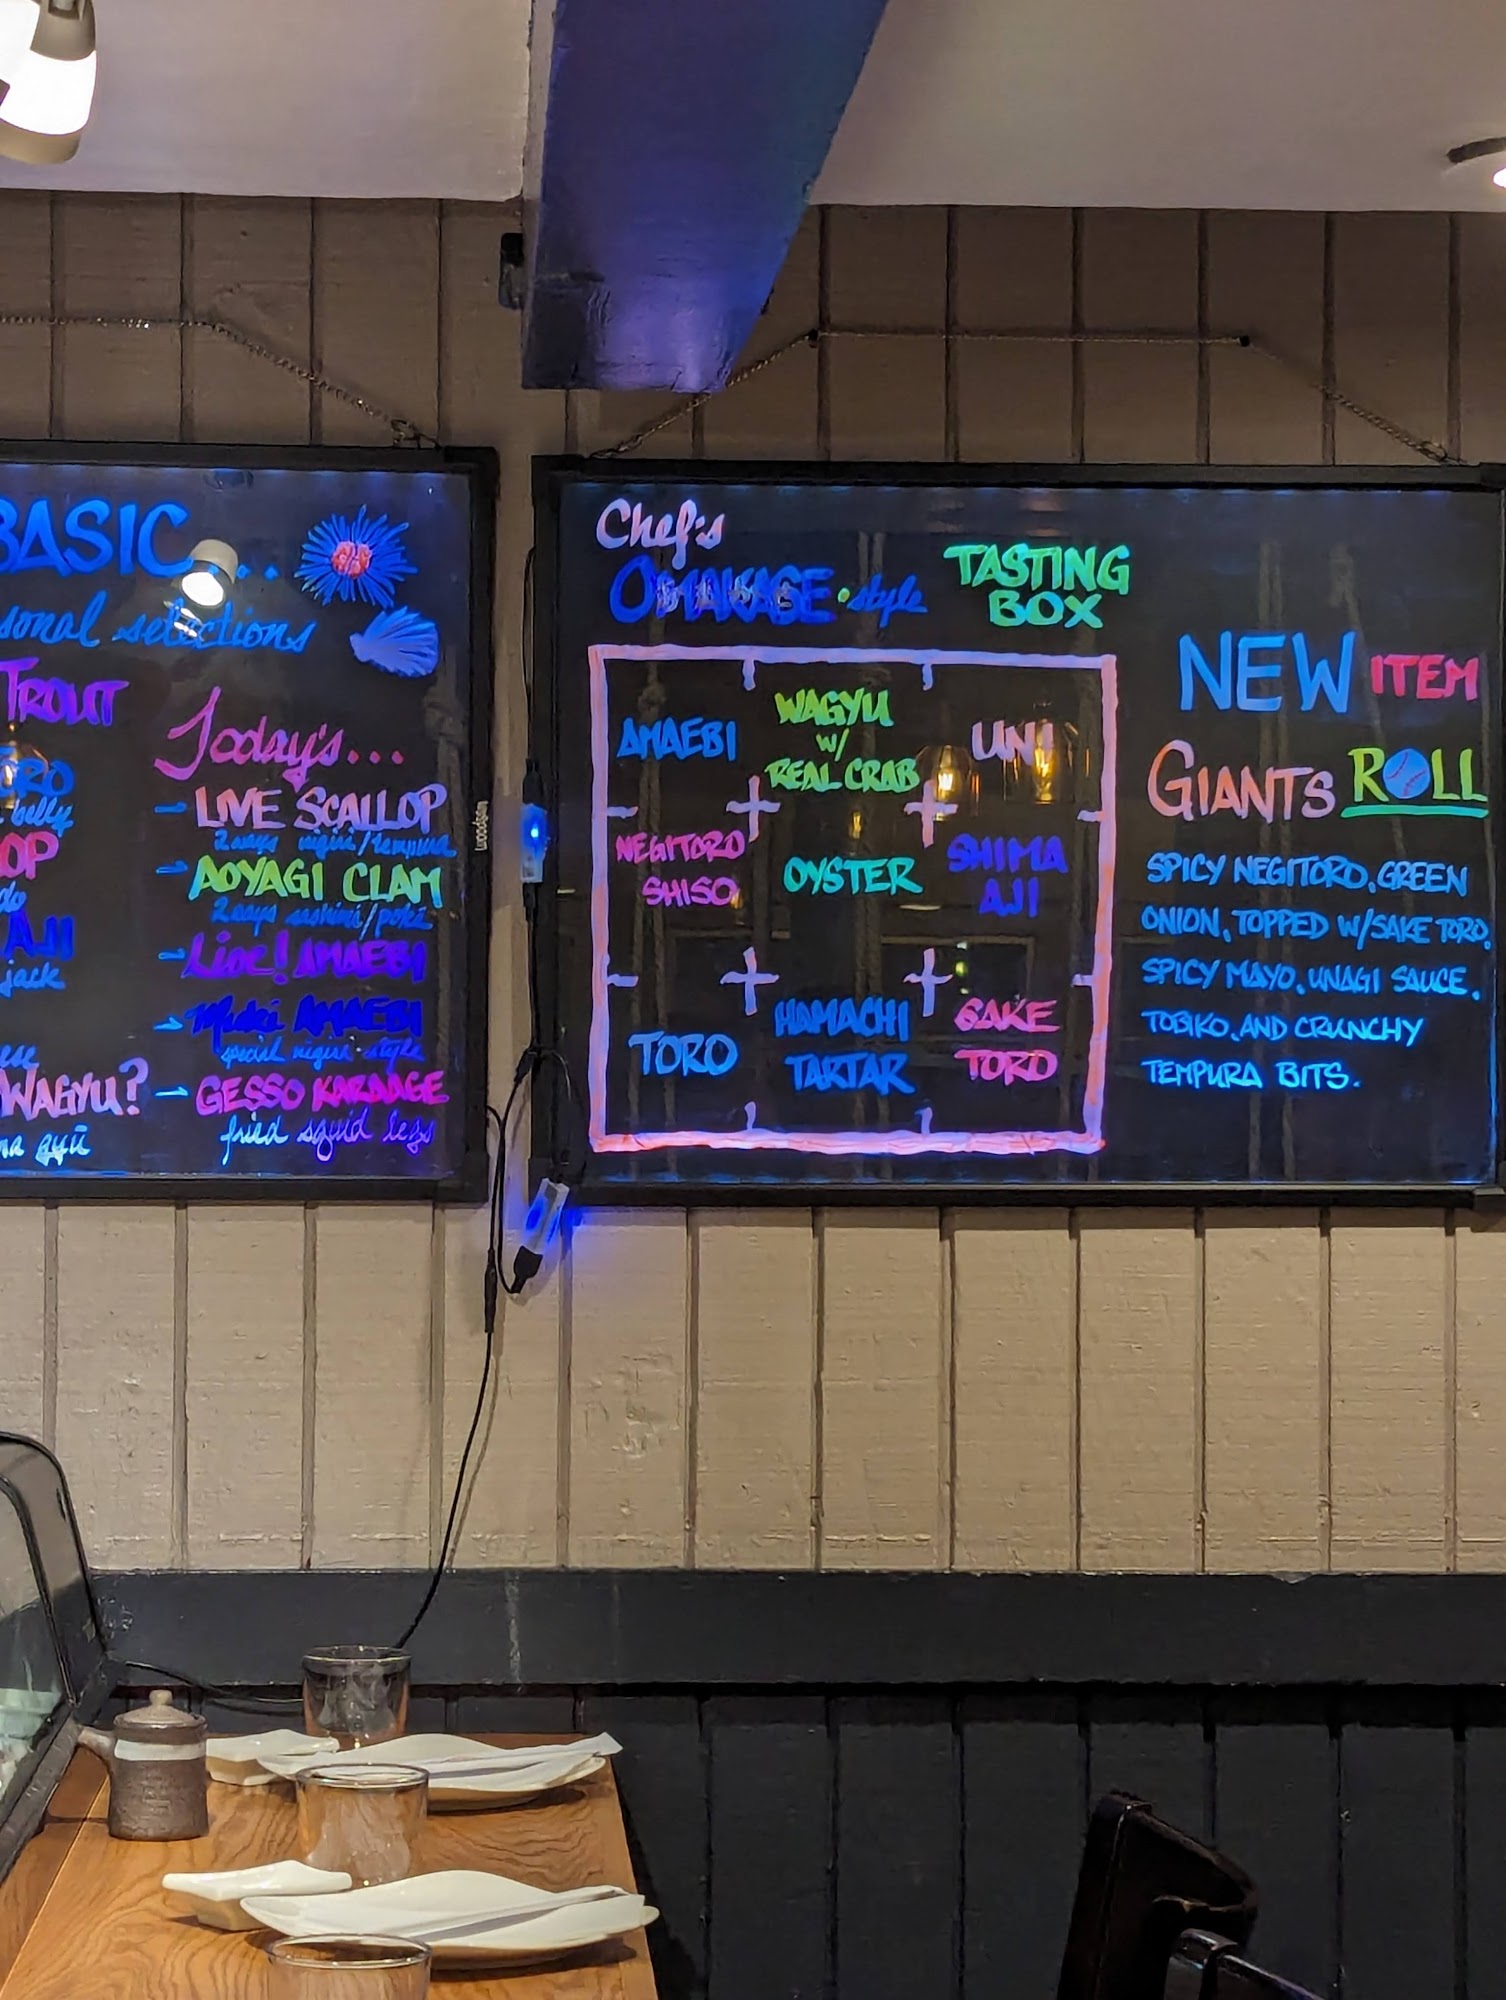 BASIC...
selections
TROUT
belly
AJI
jack
WAGYU?
Today's...
- LIVE SCALLOP
2 ways nigiri/tempura
- AOYAGI CLAM
2 ways sashimi/poké
- Live! AMAEBI
- AMAEBI
special nigiri style
- GESSO KARAAGE
fried squid legs
woodsam
Chef's
OMAKASE · style
TASTING
BOX
AMAEBI
WAGYU
W/
REAL CRAB
UNI
NEGITORO
SHISO
OYSTER
SHIMA
AJI
TORO
HAMACHI
TARTAR
SAKE
TORO
NEW ITEM
GIANTS ROLL
SPICY NEGITORO, GREEN
ONION, TOPPED W/SAKE TORO,
SPICY MAYO, UNAGI SAUCE,
TOBIKO, AND CRUNCHY
TEMPURA BITS.